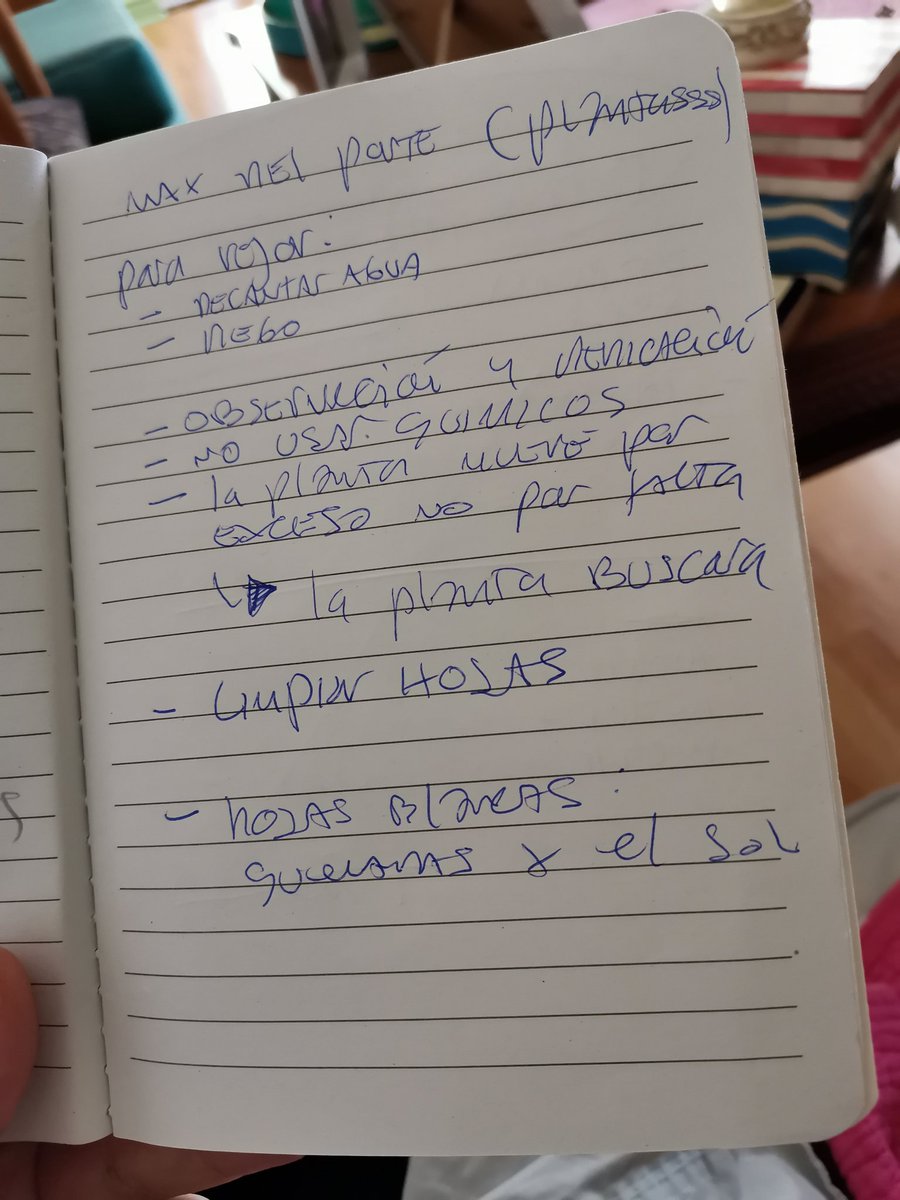 MAX DEL PARTE (PLANTASSS)
para regar:
- DECANTAR AGUA
- RIEGO
- OBSERVACIÓN y
- NO USAR QUIMICOS
- la planta MUERE por
EXCESO NO por FALTA
la planta BUSCARA
- LIMPIAR HOJAS
- HOJAS BLANCAS:
QUEMADAS x el SOL